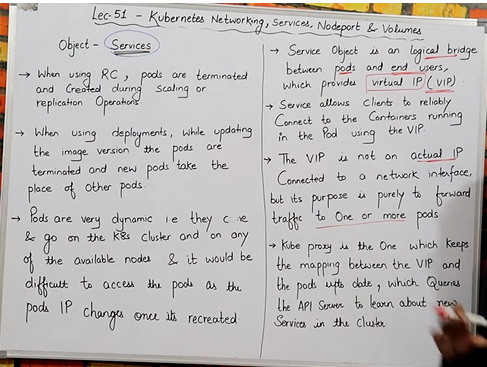 Lec-51 - Kubernetes Networking, Services, Nodeport & Volumes
Object - Services
→ When using RC, pods are terminated
and Created during Scaling or
replication Operations
→ When using deployments, while updating
the image version the pods are
terminated and new pods take the
place of other pods.
→ Pods are very dynamic i.e they
& go on the K8s cluster and on any
of the available nodes & it would be
difficult to access the pods as the
pods IP changes once its recreated
→ Service Object is an logical bridge
between pods and end users,
which provides virtual IP (VIP)
→ Service allows clients to reliably
Connect to the Containers running
in the Pod using the VIP.
→ The VIP is not an actual IP
Connected to a network interface,
but its purpose is purely to forward
traffic to One or more pods
→ Kube proxy is the One which keeps
the mapping between the VIP and
the pods date, which Queries
the API Server to learn about new
Services in the Cluster